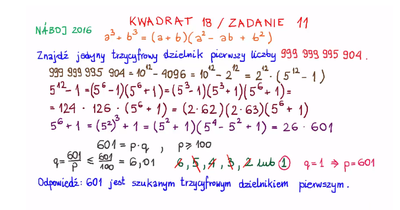 KWADRAT 18 / ZADANIE 11
NÁBOJ 2016
a³+b³ = (a+b)(a² - ab + b²)
Znajdź jedyny trzycyfrowy dzielnik pierwszy liczby 999 999 995 904.
999 999 995 904 = 10¹² - 4096 = 10¹² - 2¹² = 2¹² · (5¹² - 1)
5¹² - 1 = (5⁶ - 1)(5⁶ + 1) = (5³ - 1)(5³ + 1)(5⁶ + 1) =
= 124 · 126 · (5⁶ + 1) = (2·62)(2·63)(5⁶ + 1)
5⁶ + 1 = (5²)³ + 1 = (5² + 1)(5⁴ - 5² + 1) = 26 · 601
601 = p·q , p ≥ 100
q = 601/p ≤ 601/100 = 6,01 6, 5, 4, 3, 2 lub 1 q = 1 → p = 601
Odpowiedź: 601 jest szukanym trzycyfrowym dzielnikiem pierwszym.